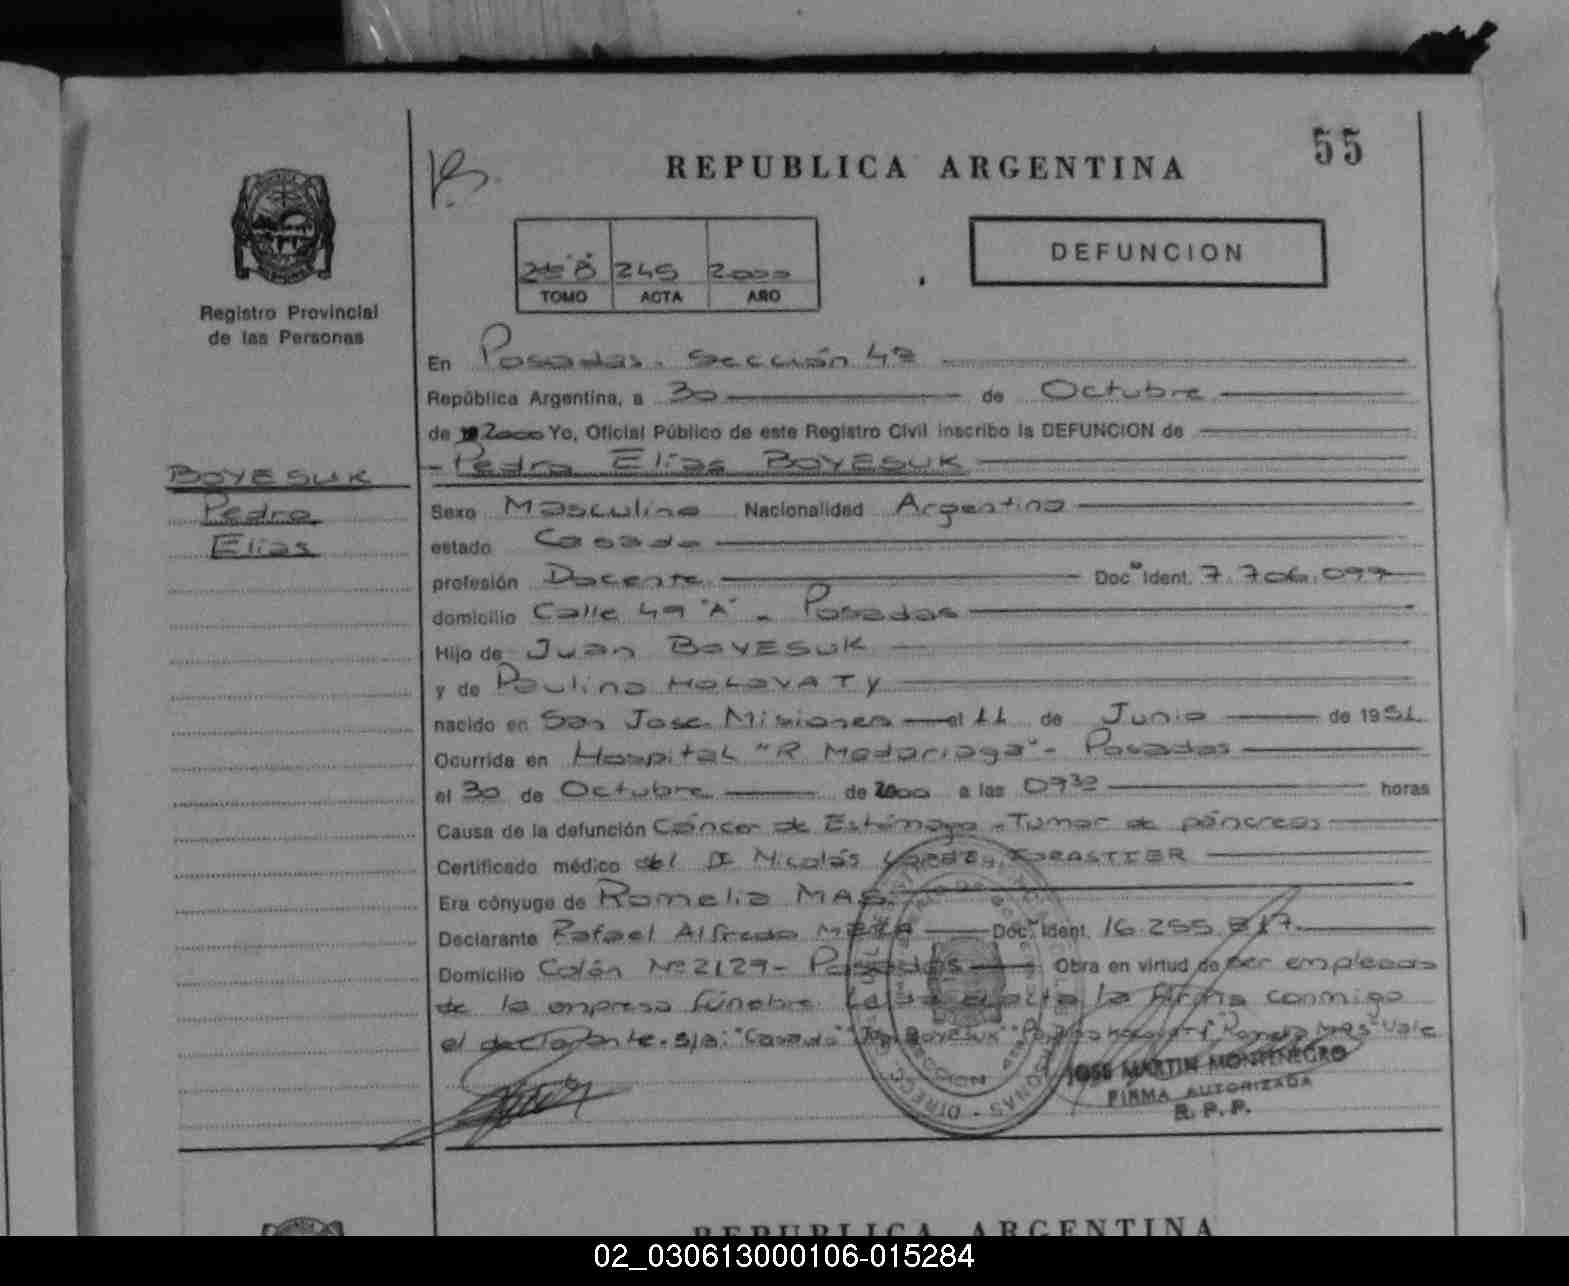 55
REPUBLICA ARGENTINA
DEFUNCION
245 2000
TOMO ACTA AÑO
Registro Provincial
de las Personas
BOYESUK
Pedro
Elias
En Posadas - Sección 4ª
República Argentina, a 30 de Octubre
de 2000 Yo, Oficial Público de este Registro Civil inscribo la DEFUNCION de
- Pedro Elias BOYESUK
Sexo Masculino Nacionalidad Argentina
estado Casado
profesión Docente Docᵗᵒ Ident. 7.706.099
domicilio Calle 49 "A" - Posadas
Hijo de Juan BOYESUK
y de Paulina HOLOVATY
nacido en San Jose Misiones el 11 de Junio de 1951
Ocurrida en Hospital "R Madariaga" - Posadas
el 30 de Octubre de 2000 a las 07³⁰ horas
Causa de la defunción Cáncer de Estómago - Tumor de páncreas
Certificado médico del Dr Nicolás FORASTIER
Era cónyuge de Romelia MAS.
Declarante Rafael Alfredo Docᵗᵒ Ident. 16.255.817
Domicilio Colón Nº 2129 - Posadas Obra en virtud de ser empleado
de la empresa fúnebre. Leída el acta la firma conmigo
el declarante. S/R: "Casado" "Juan BOYESUK" "Paulina HOLOVATY" "Romelia MAS" Vale
JOSE MARTIN MONTENEGRO
FIRMA AUTORIZADA
R. P. P.
REPUBLICA ARGENTINA
02_030613000106-015284